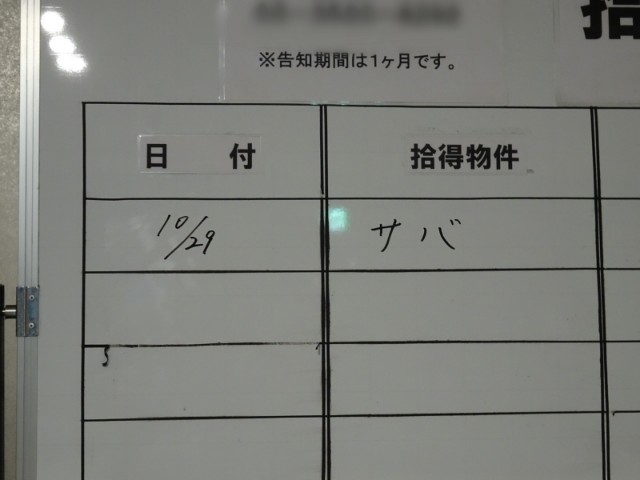 ※告知期間は1ヶ月です。
拾
日 付
拾得物件
10/29
サバ